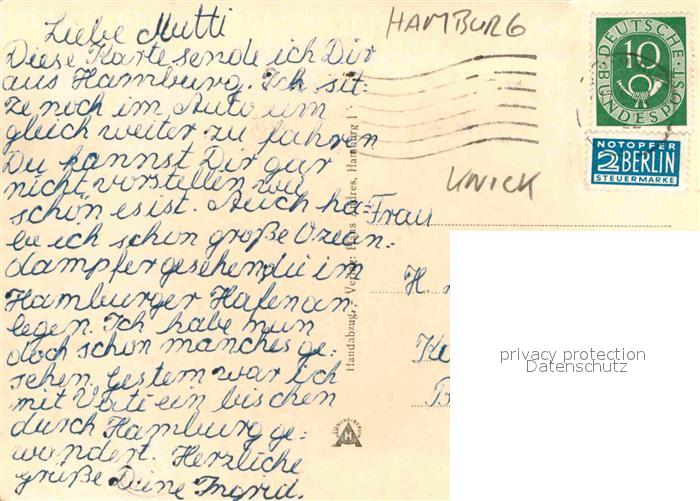 Liebe Mutti
Diese Karte sende ich Dir
aus Hamburg. Ich sit-
ze noch im Auto um
gleich weiter zu fahren
Du kannst Dir gar
nicht vorstellen wie
schön es ist. Auch ha-
be ich schon große Ozean-
dampfer gesehen die im
Hamburger Hafen an
legen. Ich habe nun
doch schon manches ge-
sehen. Gestern war ich
mit Vati ein bischen
durch Hamburg ge-
wandert. Herzliche
grüße Deine Ingrid.
Handabzug, Verlag: Hans Hamburg 1
HAMBURG
KNICK
DEUTSCHE
10
BUNDESPOST
NOTOPFER
2 BERLIN
STEUERMARKE
Frau
H.
privacy protection
Datenschutz